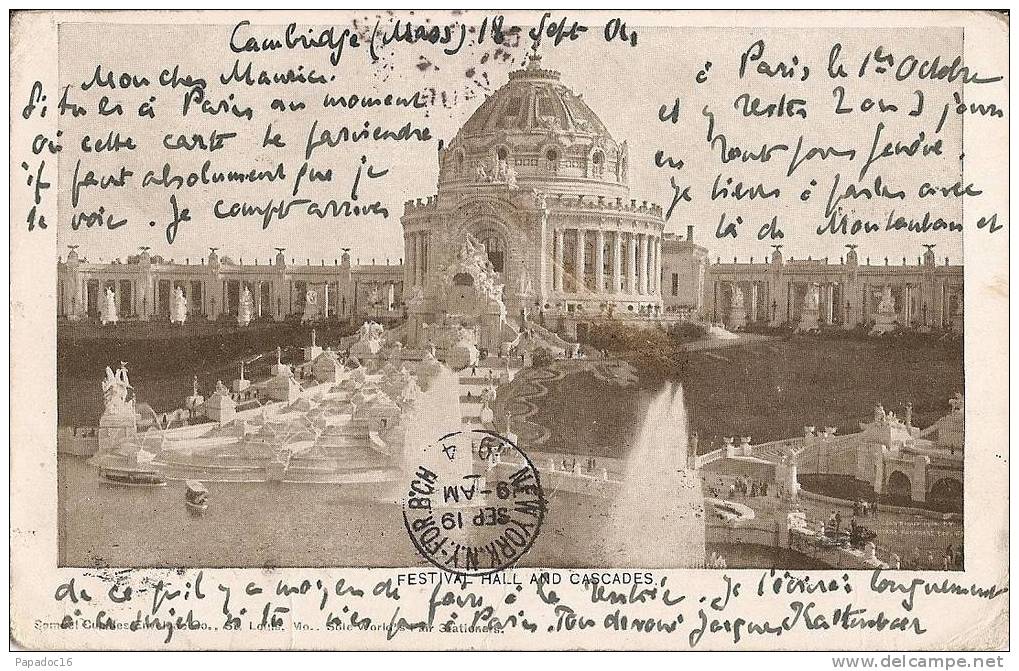 Cambridge (Mass) 18 Sept 04
Mon cher Maurice.
Si tu es à Paris au moment
où cette carte te parviendra,
il faut absolument que je
te voie. Je compte arriver
à Paris le 1er Octobre
et y rester 2 ou 3 jours
en route pour Genève.
Je tiens à parler avec
là de Montauban et
de ce qu'il y a moyen de faire à la rentrée. Je t'écrirai longuement
FESTIVAL HALL AND CASCADES.
à ce sujet si tu n'es pas à Paris. Ton dévoué Jacques Kaltenbach
Samuel Cupples Envelope Co., St. Louis, Mo., Sole World's Fair Stationers.
NEW YORK, N.Y.-FOR. B'CH
SEP 19
9-AM
04
Papadoc16
http://www.delcampe.net